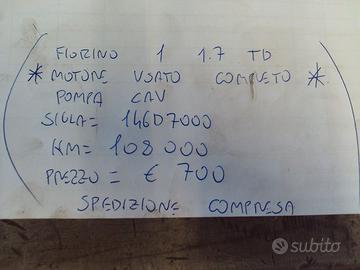 FIORINO 1 1.7 TD
* MOTORE VUOTO COMPLETO *
POMPA CAV
SIGLA = 146D7000
KM = 108 000
PREZZO = € 700
SPEDIZIONE COMPRESA
subito